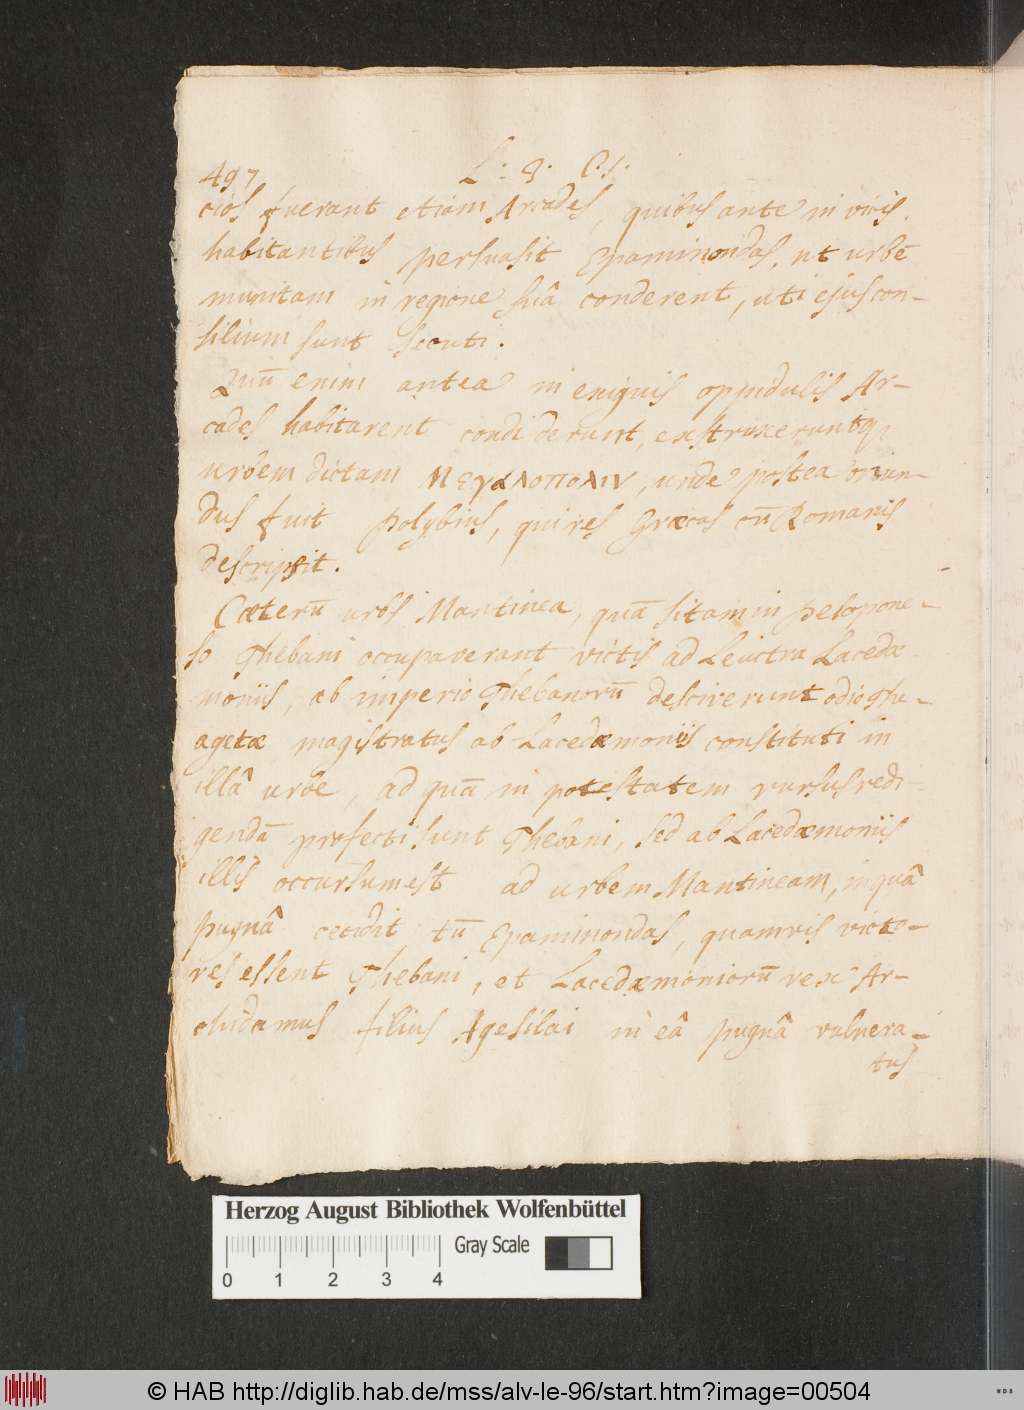 497 L: 3. C. 1.
cios fuerant etiam Arcades, quibus ante in vicis
habitantibus persuasit Epaminondas, ut urbē
munitam in regione suâ conderent, uti ejus con-
silium sunt secuti.
Quū enim antea in exiguis oppidulis Ar-
cades habitarent condiderunt, exstruxeruntq;
urbem dictam Μεγαλοπολιν, unde postea oriun-
dus fuit Polybius, qui res Græcas cū Romanis
descripsit.
Cæterū urbs Mantinea, quā sitam in Pelopone-
so Thebani occupaverant victis ad Leuctra Lacedæ-
moniis, ab imperio Thebanorū desciverunt odio
agetæ magistratus ab Lacedæmoniis constituti in
illâ urbe, ad quā in potestatem rursus redi-
gendā profecti sunt Thebani, sed ab Lacedæmoniis
illis occursum est ad urbem Mantineam, in quâ
pugnâ cecidit tū Epaminondas, quamvis victo-
res essent Thebani, et Lacedæmoniorū rex Ar-
chidamus filius Agesilai in eâ pugnâ vulnera-
tus
Herzog August Bibliothek Wolfenbüttel
0 1 2 3 4 Gray Scale
© HAB http://diglib.hab.de/mss/alv-le-96/start.htm?image=00504